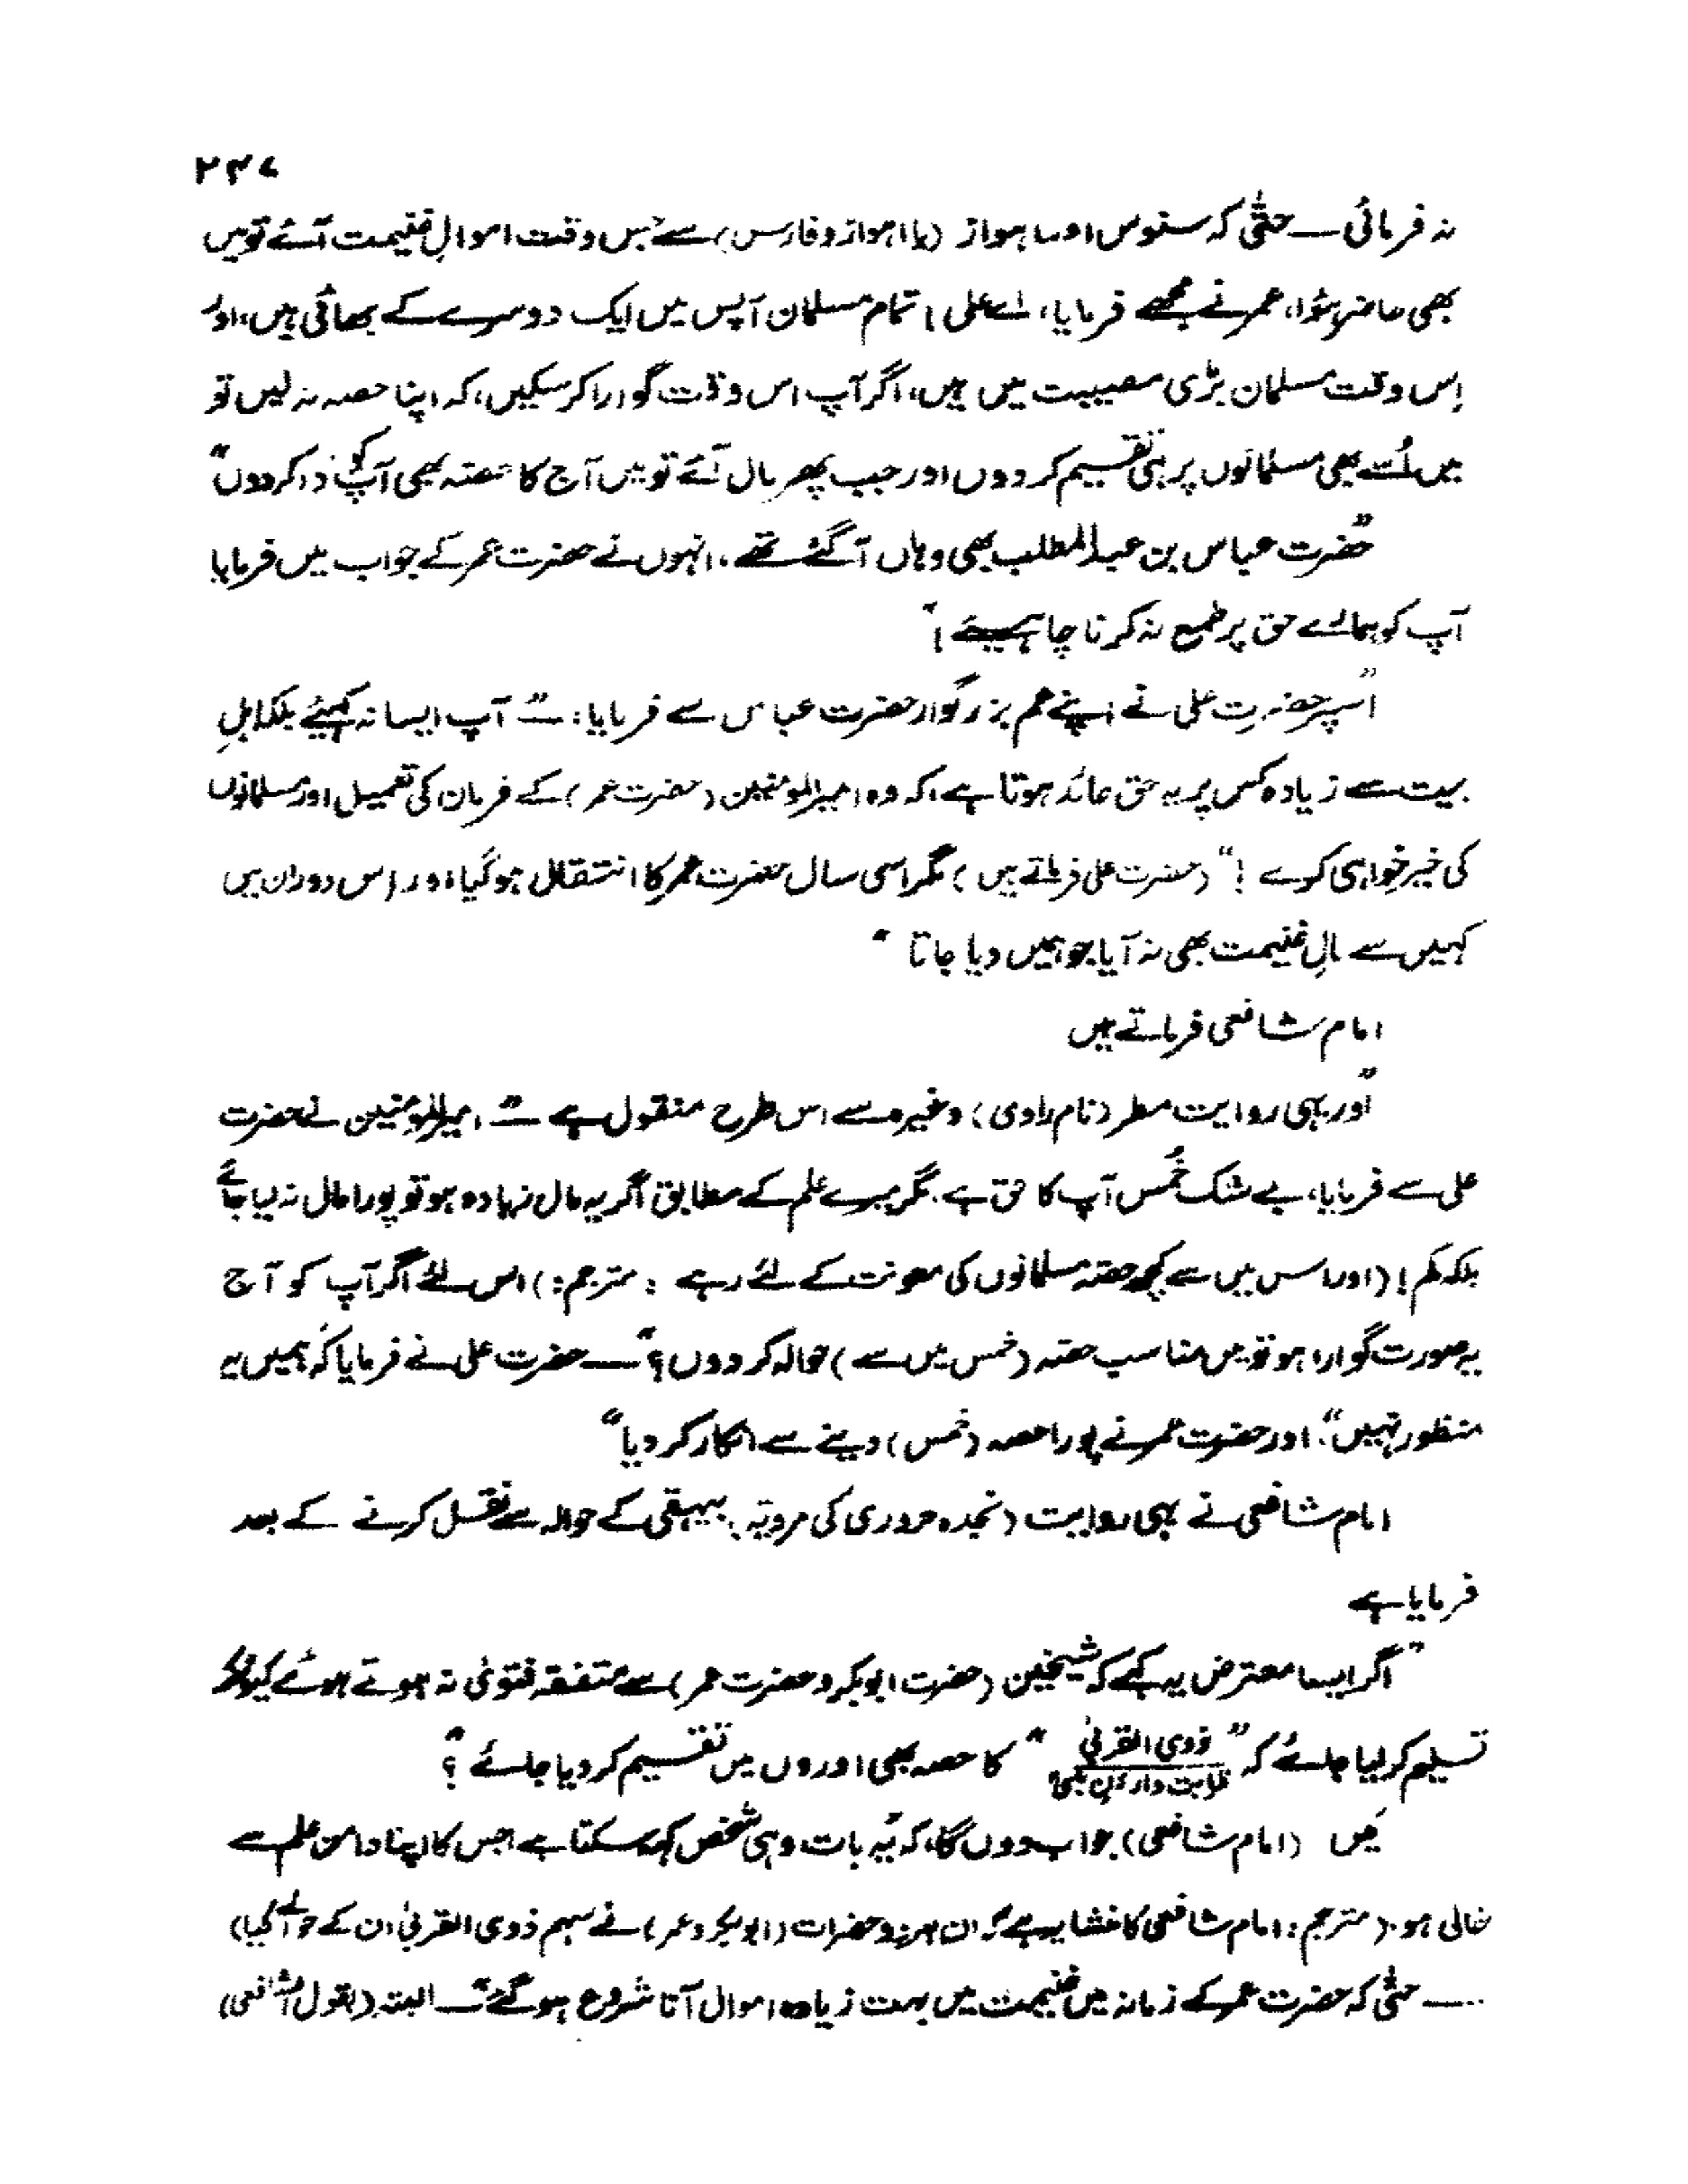 ۲۴۷
نہ فرمائی — حتّٰی کہ سنوس اور اہواز (یا اہواز و فارس) سے جس وقت اموالِ غنیمت آئے تو میں
بھی حاضر ہؤا، عمر نے مجھے فرمایا، اے علی! تمام مسلمان آپس میں ایک دوسرے کے بھائی ہیں، اور
اِس وقت مسلمان بڑی مصیبت میں ہیں، اگر آپ اس وقت گوارا کر سکیں، کہ اپنا حصہ نہ لیں تو
میں اُسے بھی مسلمانوں پر ہی تقسیم کر دوں اور جب پھر مال آئے تو میں آج کا حصّہ بھی آپ کو نذر کر دوں"
"حضرت عباس بن عبدالمطلب بھی وہاں آ گئے تھے، انہوں نے حضرت عمر کے جواب میں فرمایا
آپ کو ہمارے حق پر طمع نہ کرنا چاہیئے!"
"اسپر حضرتِ علی نے اپنے عم بزرگوار حضرت عباس سے فرمایا: — " آپ ایسا نہ کہیئے بلکہ اہلِ
بیت سے زیادہ کس پر یہ حق عائد ہوتا ہے، کہ وہ امیرالمومنین (حضرت عمر) کے فرمان کی تعمیل اور مسلمانوں
کی خیر خواہی کرے!" (حضرت علی فرماتے ہیں) مگر اسی سال حضرت عمر کا انتقال ہو گیا، اور اِس دوران میں
کہیں سے مالِ غنیمت بھی نہ آیا جو ہمیں دیا جاتا "
امام شافعی فرماتے ہیں
"اور یہی روایت مطر (نام راوی) وغیرہ سے اس طرح منقول ہے — " امیرالمومنین نے حضرت
علی سے فرمایا، بے شک خُمس آپ کا حق ہے۔ مگر میرے علم کے مطابق اگر یہ مال زیادہ ہو تو پورا مال نہ لیا جائے
بلکہ کم! (اور اس میں سے کچھ حصّہ مسلمانوں کی معونت کے لئے رہے : مترجم:) اس لئے اگر آپ کو آج
یہ صورت گوارہ ہو تو میں مناسب حصّہ (خمس میں سے) حوالہ کر دوں؟" — حضرت علی نے فرمایا کہ "ہمیں یہ
منظور نہیں"، اور حضرت عمر نے پورا حصہ (خمس) دینے سے انکار کر دیا"
امام شافعی نے یہی روایت (نجدہ حروری کی مرویّہ) بیہقی کے حوالہ سے نقل کرنے کے بعد
فرمایا ہے
"اگر ایسا معترض یہ کہے کہ شیخین (حضرت ابوبکر و حضرت عمر) سے متفقہ فتویٰ نہ ہوتے ہوئے کیونکر
تسلیم کر لیا جائے کہ "ذوی القربیٰ " کا حصہ بھی اوروں میں تقسیم کر دیا جائے ؟"
قرابت دارانِ نبیؐ
میں (امام شافعی) جواب دوں گا، کہ "یہ بات وہی شخص کہہ سکتا ہے جس کا اپنا دامن علم سے
خالی ہو۔ (مترجم: امام شافعی کا منشا یہ ہے کہ ان ہر دو حضرات (ابوبکر و عمر) نے سہم ذوی القربیٰ ان کے حوالے کیا)
— حتّٰی کہ حضرت عمر کے زمانہ میں غنیمت میں بہت زیادہ اموال آنا شروع ہو گئے" — البتہ (بقول شافعی)